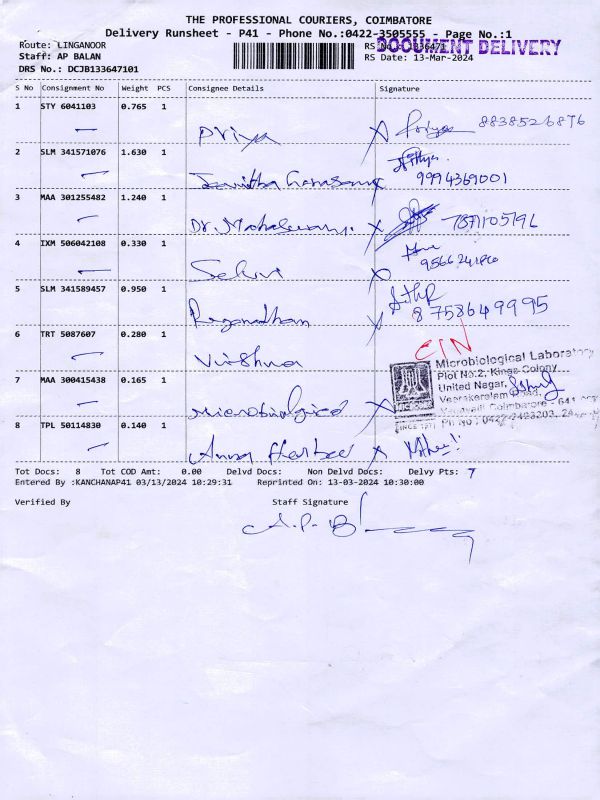 THE PROFESSIONAL COURIERS, COIMBATORE
Delivery Runsheet - P41 - Phone No.:0422-3505555 - Page No.:1
Route: LINGANOOR
RS No.: 1336471
DOCUMENT DELIVERY
Staff: AP BALAN
RS Date: 13-Mar-2024
DRS No.: DCJB133647101
S No Consignment No Weight PCS Consignee Details Signature
1 STY 6041103 0.765 1
Priya Priya 8838526876
2 SLM 341571076 1.630 1
Nithya
9994369001
3 MAA 301255482 1.240 1
Dr. 7871105796
4 IXM 506042108 0.330 1
Selvi
5 SLM 341589457 0.950 1
8758649995
6 TRT 5087607 0.280 1
Vinshna
7 MAA 300415438 0.165 1
Microbiological
Microbiological Laboratory
Plot No:2, Kings Colony,
United Nagar,
Veerakeralam Road,
Coimbatore - 641 007
Ph No : 0422-2423203,
8 TPL 50114830 0.140 1
Tot Docs: 8 Tot COD Amt: 0.00 Delvd Docs: Non Delvd Docs: Delvy Pts: 7
Entered By :KANCHANAP41 03/13/2024 10:29:31 Reprinted On: 13-03-2024 10:30:00
Verified By Staff Signature
A.P. B